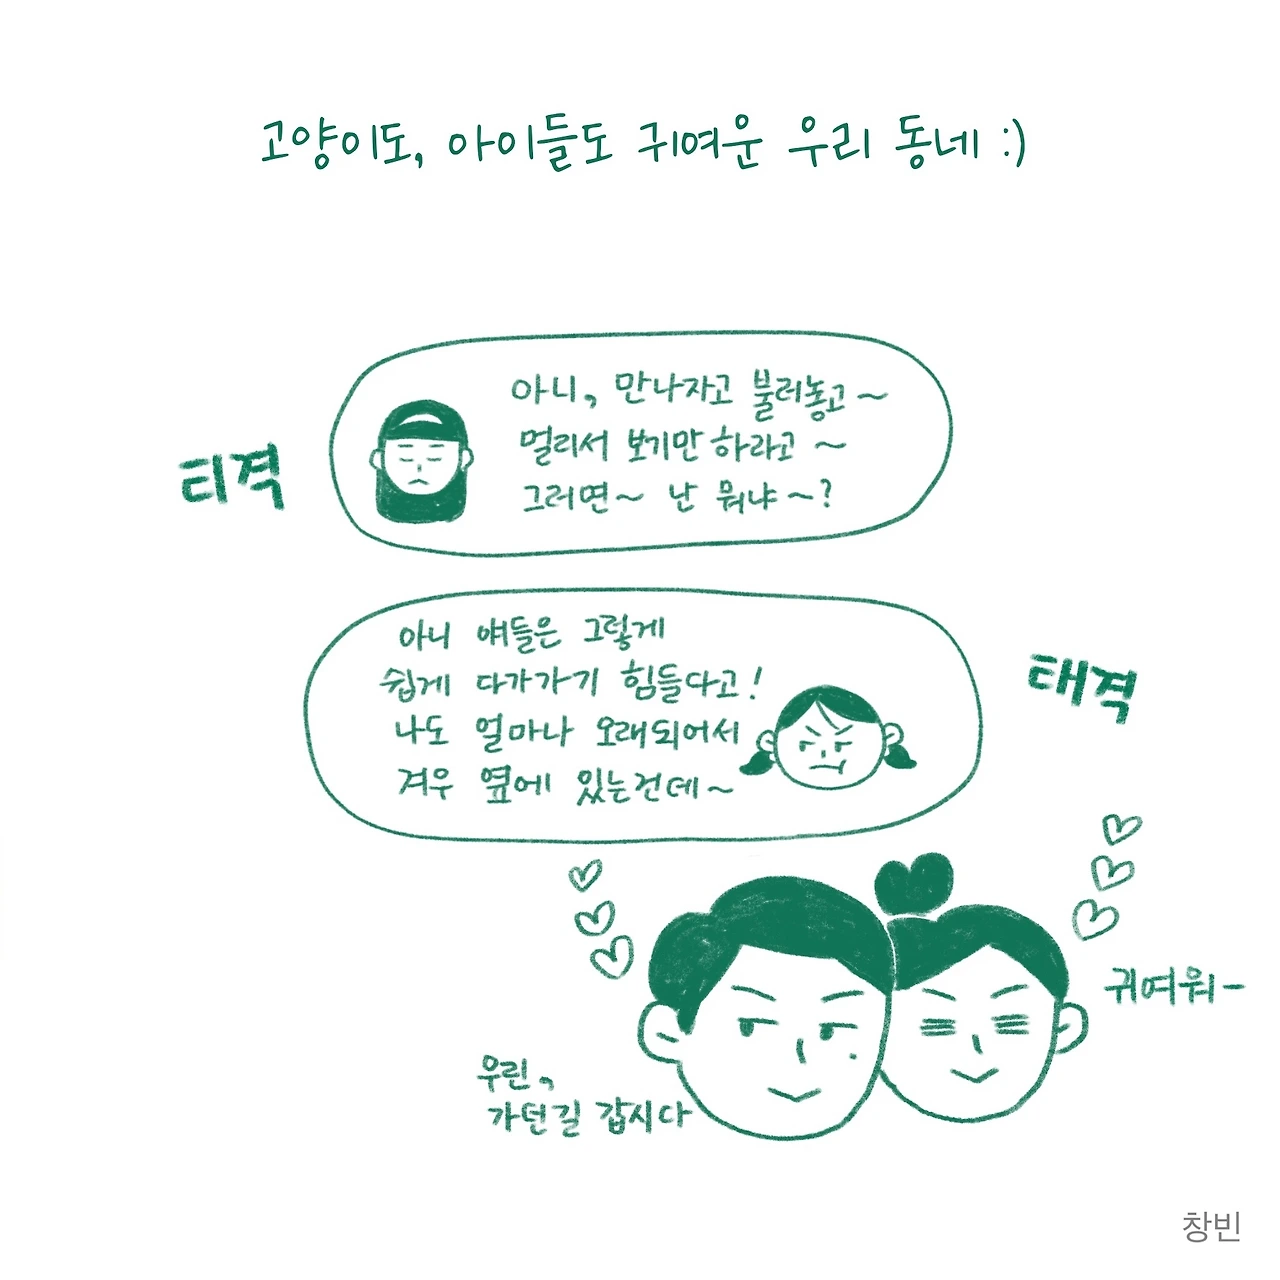 고양이도, 아이들도 귀여운 우리 동네 :)
티격
아니, 만나자고 불러놓고~
멀리서 보기만 하라고~
그러면~ 난 뭐냐~?
아니 얘들은 그렇게
쉽게 다가가기 힘들다고!
나도 얼마나 오래되어서
겨우 옆에 있는건데~
태격
귀여워-
우린,
가던길 갑시다
창빈